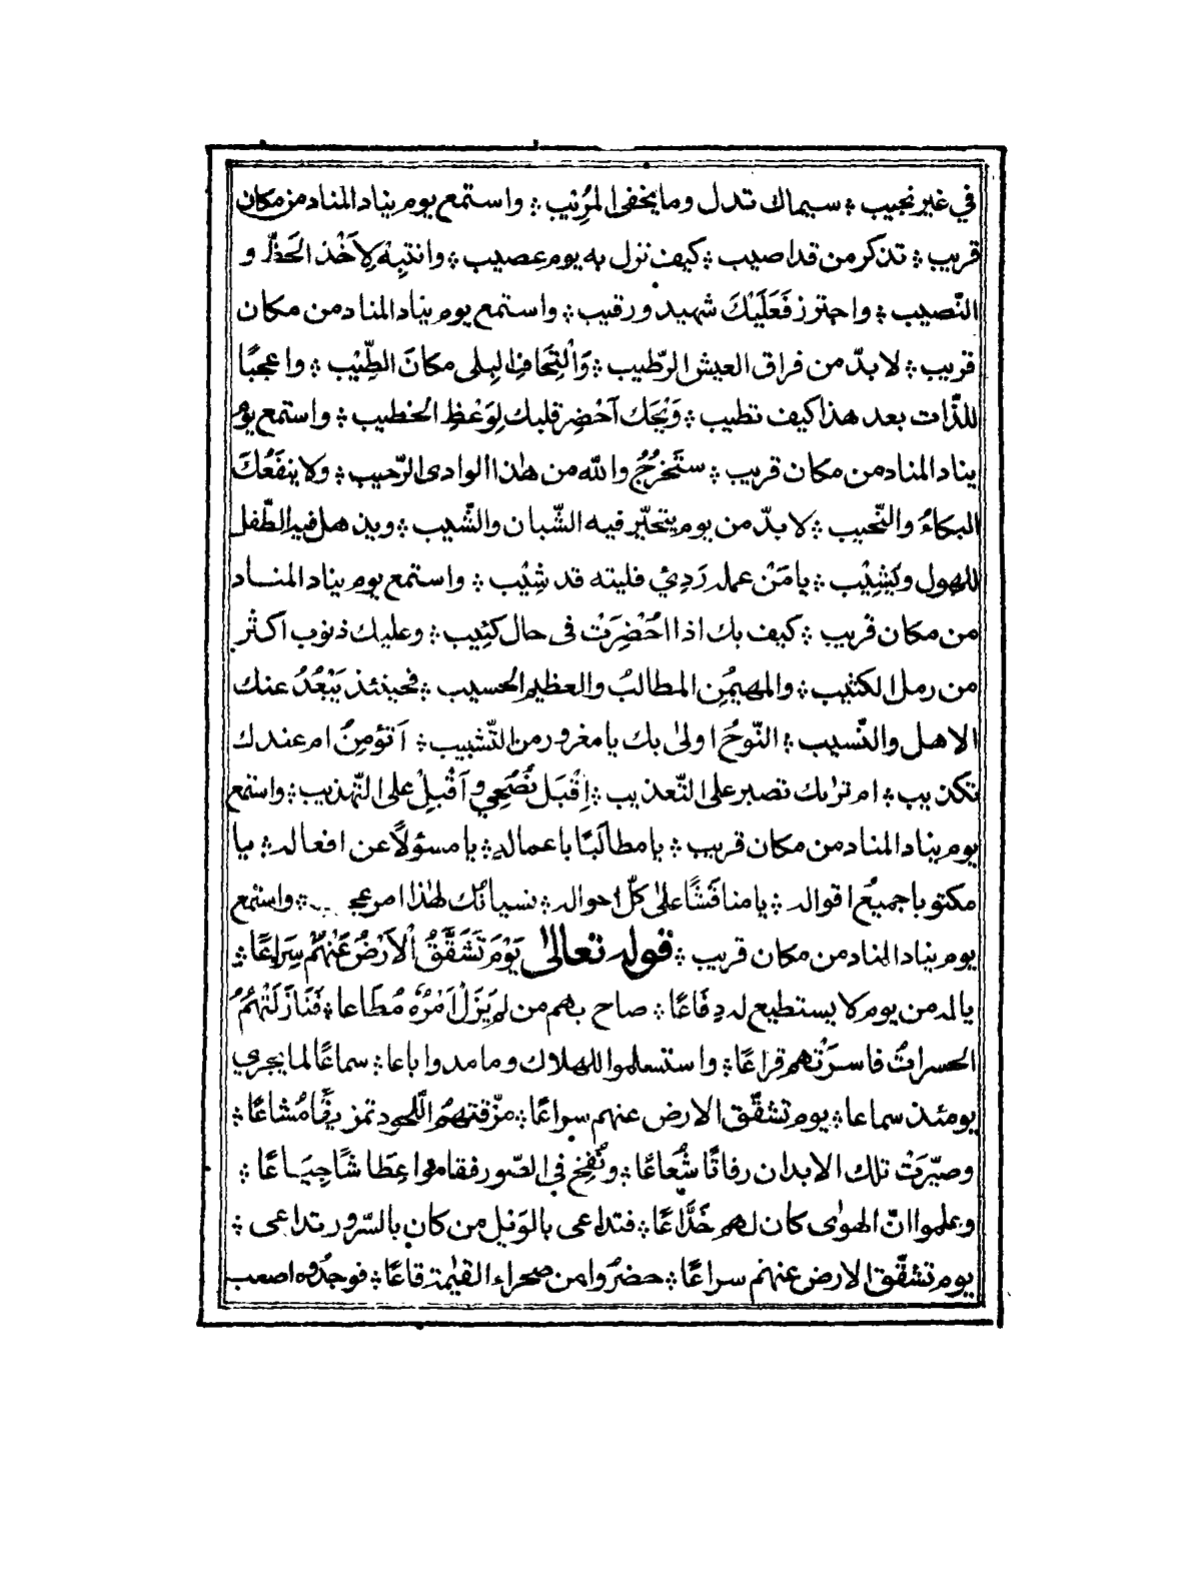 في غير نجيب ؞ سيماك تدل وما يخفى المُريب ؞ واستمع يوم يناد المناد من مكان
قريب ؞ تذكر من قد اصيب ؞ كيف نزل به يوم عصيب ؞ وانتبِهْ لِاَخْذ الحَظّ و
النّصيب ؞ واحترز فَعَلَيْكَ شهيد ورقيب ؞ واستمع يوم يناد المناد من مكان
قريب ؞ لا بدّ من فراق العيش الرّطيب ؞ وَالْتِحَافِ البِلى مكانَ الطِّيْب ؞ واعجبًا
للذّات بعد هذا كيف تطيب ؞ وَيْحَك اَحْضِر قلبك لِوَعْظِ الخطيب ؞ واستمع يوم
يناد المناد من مكان قريب ؞ ستَخرُجُ والله من هٰذا الوادى الرّحيب ؞ ولا ينفَعُكَ
البكاءُ والنّحيب ؞ لا بدّ من يوم يتحيّر فيه الشّبان والشّيب ؞ ويذهل فيه الطّفل
للهول ويَشِيْب ؞ يا مَنْ عمله رَدِئ فليته قد شِيْب ؞ واستمع يوم يناد المنـاد
من مكان قريب ؞ كيف بك اذا اُحْضِرَتْ فى حال كئيب ؞ وعليك ذنوب اكثر
من رمل الكثيب ؞ والمهيمُن المطالبُ والعظيم الحسيب ؞ فحينئذ يَبْعُدُ عنك
الاهل والنّسيب ؞ النّوحُ اولىٰ بك يا مغرور من التّشبيب ؞ اَتؤمِنُ ام عندك
تكذيب ؞ ام تراك تصبر على التّعذيب ؞ اِقْبَل نُصْحِي و اَقْبِلْ على التّهذيب ؞ واستمع
يوم يناد المناد من مكان قريب ؞ يا مطالَبًا باعماله ؞ يا مسؤلاً عن افعاله ؞ يا
مكتوبا جميعُ اقواله ؞ يا مناقَشًا علىٰ كلّ احواله ؞ نسيانُك لهٰذا امر عج ؞ واستمع
يوم يناد المناد من مكان قريب ؞ قوله تعالىٰ يَوْمَ تَشَقَّقُ الْاَرْضُ عَنْهُمْ سِرَاعًا ؞
يا له من يوم لا يستطيع له دِفَاعًا ؞ صاح بهم من لم يَزَلْ اَمْرُهٗ مُطَاعا ؞ فَنَازَلَتْهُمُ
الحسراتُ فاسـرَتْهم قراعًا ؞ واستسلموا للهلاك وما مدوا باعا ؞ سماعًا لما يجري
يومئذ سماعا ؞ يوم تشقّق الارض عنهم سراعًا ؞ مزّقتهمُ اللّحود تمزيقًا مُشاعًا ؞
وصيّرَتْ تلك الابدان رفاتًا شُعَاعًا ؞ ونُفِخ في الصّور فقاموا عِطَاشًا جِيَـاعًا ؞
وعلموا انّ الهوٰى كان لهم خَدَّاعًا ؞ فتداعى بالوَيْل من كان بالسّرور تداعى ؞
يوم تشقّق الارض عنهم سراعًا ؞ حضرُوا من صحراء القيٰمة قاعًا ؞ فوجدُوه اصعب